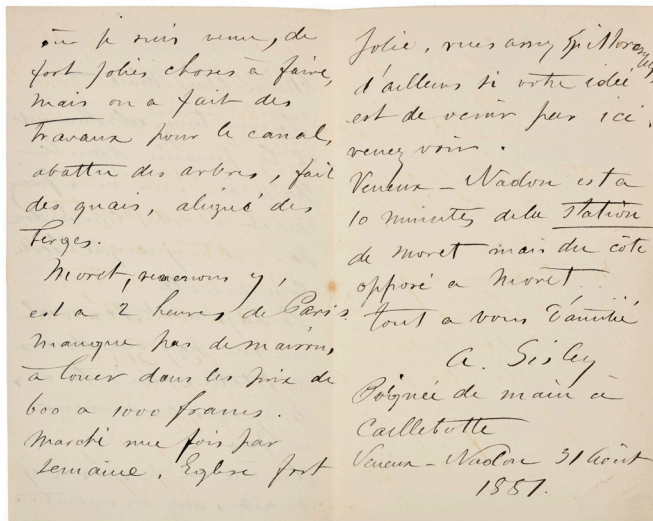 où je suis venu, de
fort jolies choses à faire,
mais on a fait des
travaux pour le canal,
abattu des arbres, fait
des quais, aligné des
berges.
Moret, revenons y,
est a 2 heures de Paris.
manque pas de maisons,
à louer dans les prix de
600 a 1000 francs.
Marché une fois par
semaine. Eglise fort
jolie, vues assez pittoresques,
d'ailleurs si votre idée
est de venir par ici,
venez voir.
Veneux-Nadon est a
10 minutes de la station
de Moret mais du côté
opposé a Moret.
tout a vous d'amitié
A. Sisley
Poignée de main à
Caillebotte
Veneux-Nadon 31 Août
1881.